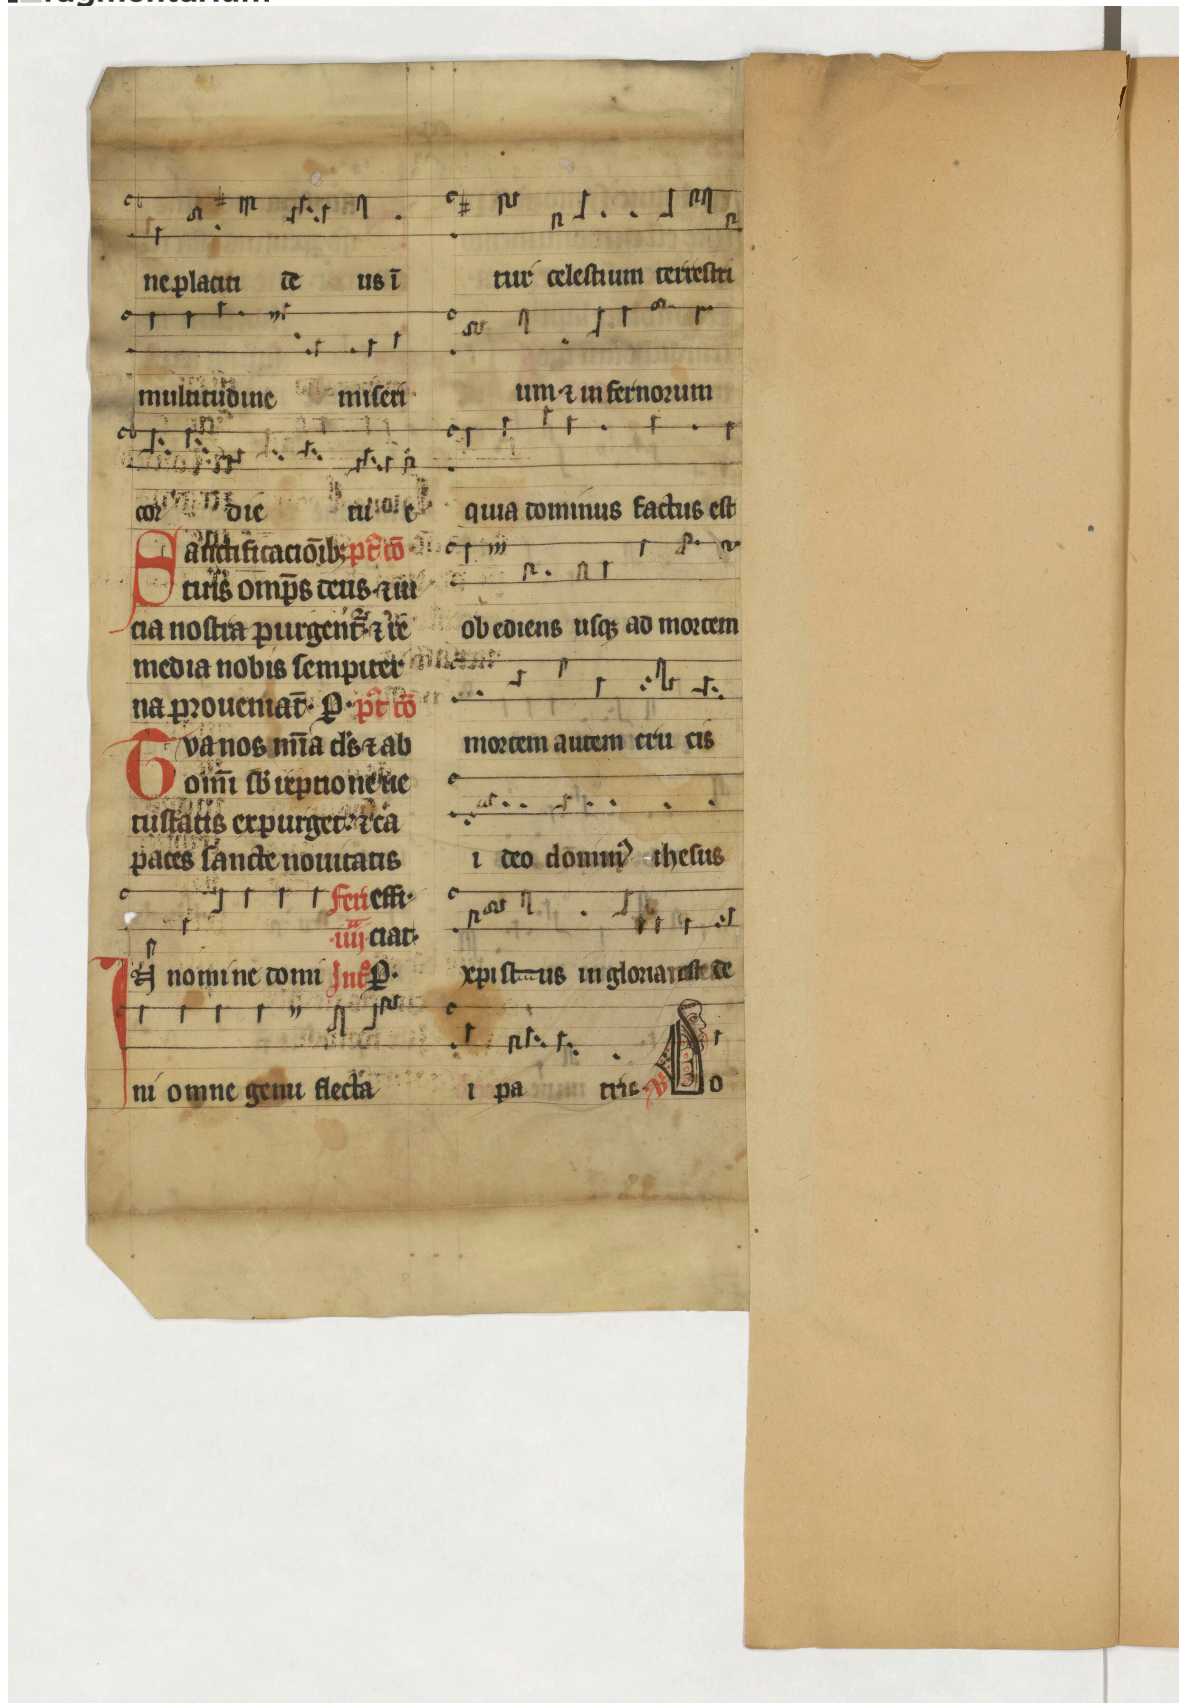 fragmentarium
ne placiti de us ī
multitudine miseri
cor die tu e
Sanctificacōib; pt̄ cō
tuis omp̄s deus ⁊ ui
cia nostra purgent̄ ⁊ re
media nobis sempiter
na proueniāt. P. pt̄ cō
Tua nos mīa ds̄ ⁊ ab
om̄i sb ireptione ue
tustatis expurget ⁊ ca
paces sancte nouitatis
feri effi
iiij ciat
In nomine domi Int P.
ni omne genu flecta
tur celestium terrestri
um ⁊ infernorum
quia dominus factus est
obediens usq; ad mortem
mortem autem cru cis
i deo domin᷒ ihesus
xpistus in gloria est de
i pa tris. V Do